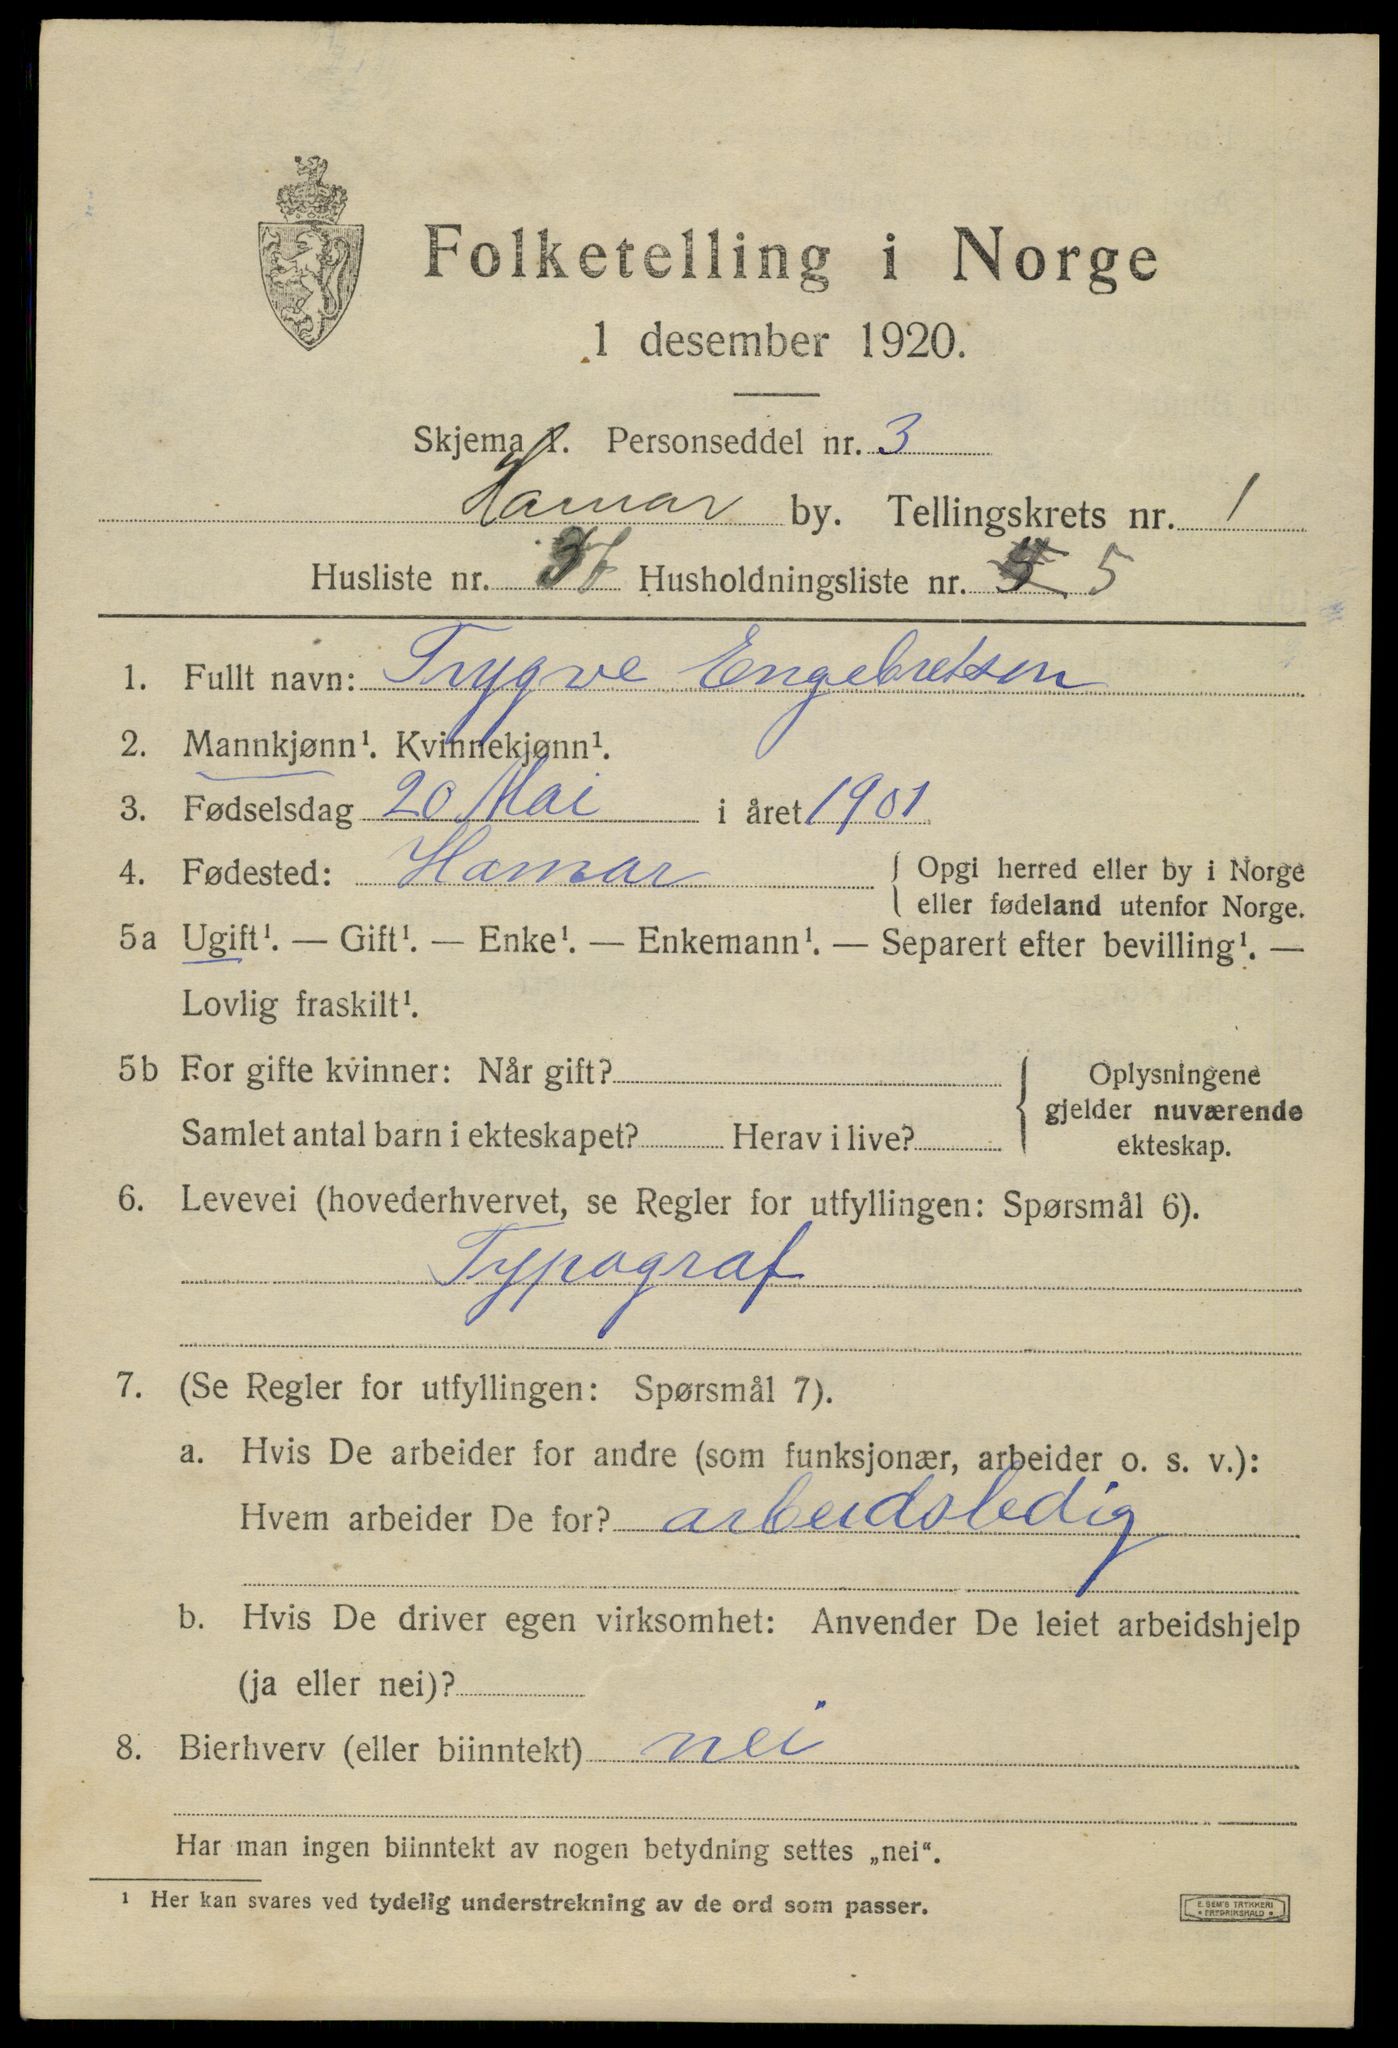 Folketelling i Norge
1 desember 1920.
Skjema 1. Personseddel nr. 3
Hamar by. Tellingskrets nr. 1
Husliste nr. Husholdningsliste nr. 5
1. Fullt navn: Trygve Engebretsen
2. Mannkjønn¹. Kvinnekjønn¹.
3. Fødselsdag 20 Mai i året 1901
4. Fødested: Hamar { Opgi herred eller by i Norge
eller fødeland utenfor Norge.
5a Ugift¹. — Gift¹. — Enke¹. — Enkemann¹. — Separert efter bevilling¹. —
Lovlig fraskilt¹.
5b For gifte kvinner: Når gift? { Oplysningene
gjelder nuværende
Samlet antal barn i ekteskapet? Herav i live?
ekteskap.
6. Levevei (hovederhvervet, se Regler for utfyllingen: Spørsmål 6).
Typograf
7. (Se Regler for utfyllingen: Spørsmål 7).
a. Hvis De arbeider for andre (som funksjonær, arbeider o. s. v.):
Hvem arbeider De for? arbeidsledig
b. Hvis De driver egen virksomhet: Anvender De leiet arbeidshjelp
(ja eller nei)?
8. Bierhverv (eller biinntekt) nei
Har man ingen biinntekt av nogen betydning settes „nei“.
¹ Her kan svares ved tydelig understrekning av de ord som passer.
E. SEM'S TRYKKERI
• FREDRIKSHALD •